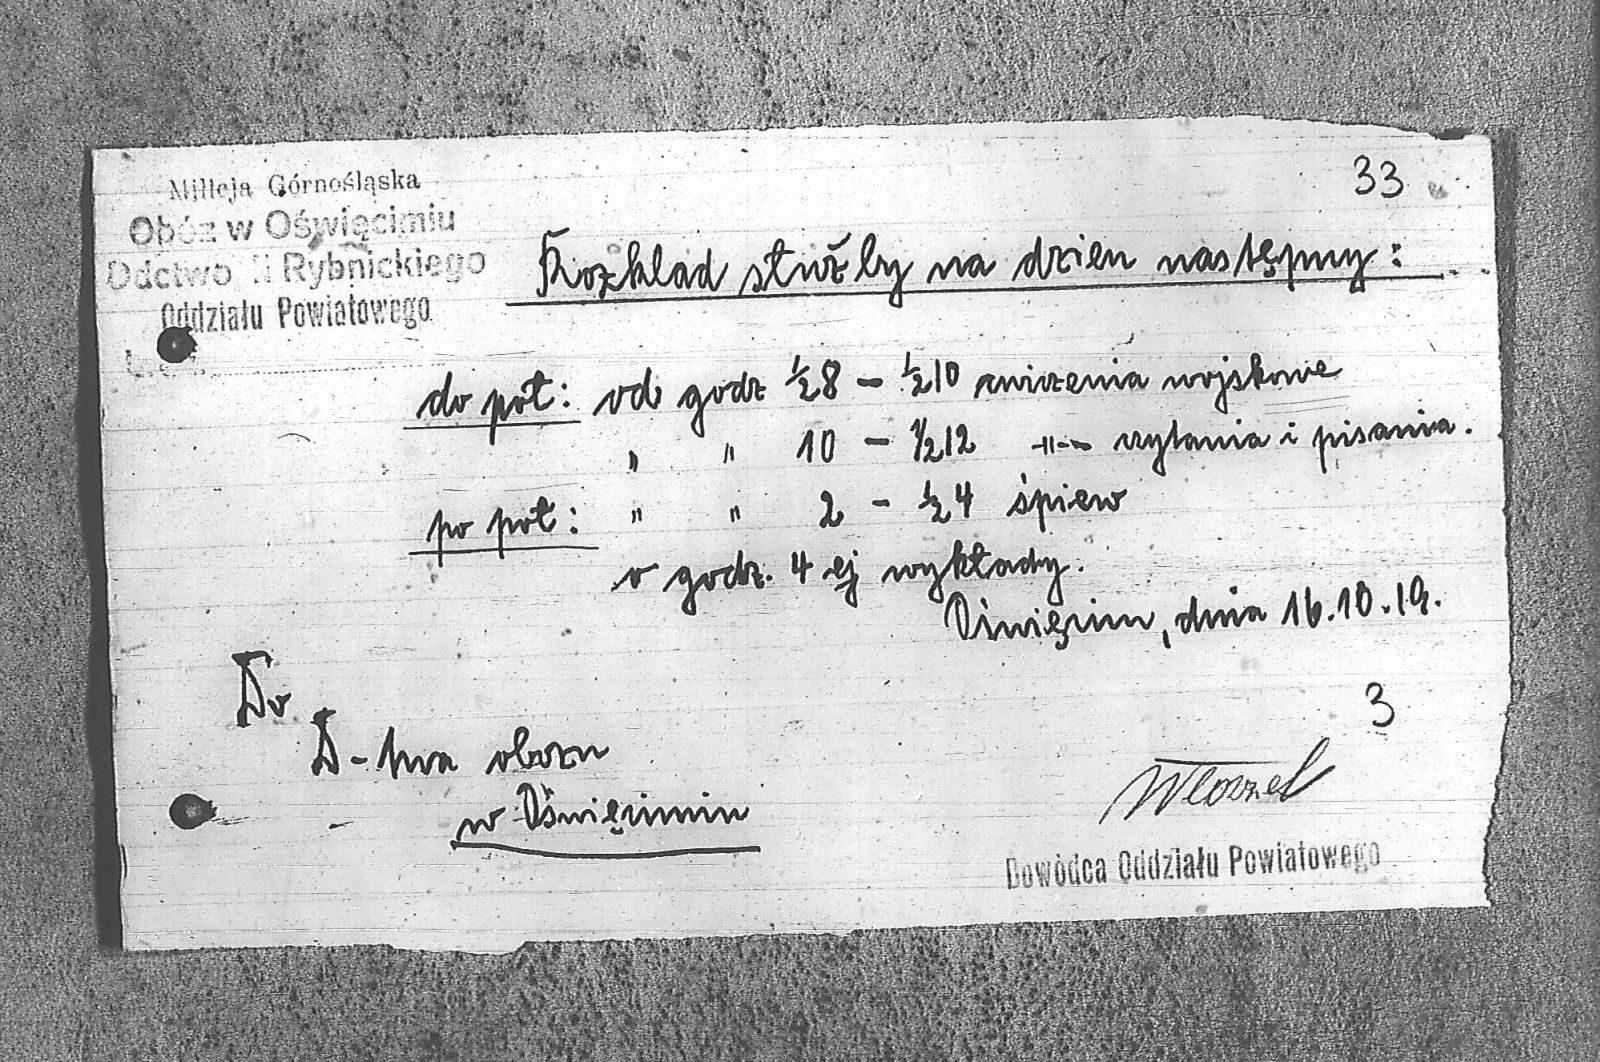 33
Milicja Górnośląska
Obóz w Oświęcimiu
Ddctwo II Rybnickiego
Oddziału Powiatowego
Rozkład służby na dzien następny:
do poł: od godz ½8 - ½10 cwiczenia wojskowe
" " 10 - ½12 -"- czytania i pisania.
po poł: " " 2 - ½4 śpiew
o godz. 4 ej wykłady.
Oświęcim, dnia 16.10.19.
Do
D-twa obozu
w Oświęcimiu
3
Dowódca Oddziału Powiatowego